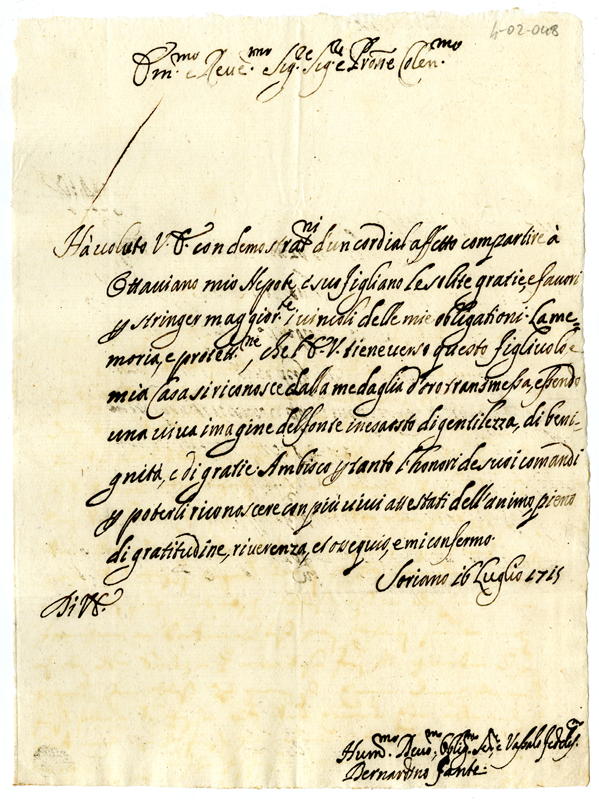 4-02-048
Em.mo e Reve.mo Sig.re Sig.re e Prone Colen.mo
Hà voluto V. E. con demostrat.ni d'un cordial affetto compartire à
Ottaviano mio Nepote, e suo figliano le solite gratie e favori
p stringer maggior.te i vincoli delle mie obligationi. La me-
moria, e protet.ne, che V. tiene verso questo figliuolo e
mia Casa si riconosce dalla medaglia d'oro transmessa, essendo
una viva imagine del fonte inesausto di gentilezza, di beni-
gnità, e di gratie. Ambisco p tanto l'honori de suoi comandi
p poterli riconoscere con più vivi attestati dell'animo pieno
di gratitudine, riverenza, et ossequio, e mi confermo.
Soriano 16 Luglio 1715
Di V. E.
Hum.mo Devo.mo Oblig.mo Se.re e Vassalo fedeliss.
Bernardino Fante